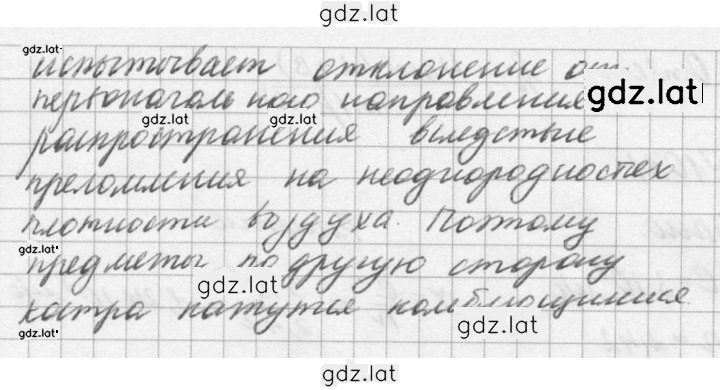 gdz.lat
gdz.lat
испытывает отклонение от
первоначального направления gdz.lat
gdz.lat gdz.lat
распространения вследствие
преломления на неоднородностях
плотности воздуха. Поэтому
gdz.lat
предметы по другую сторону
gdz.lat
костра кажутся колеблющимися
gdz.lat gdz.lat
gdz.lat